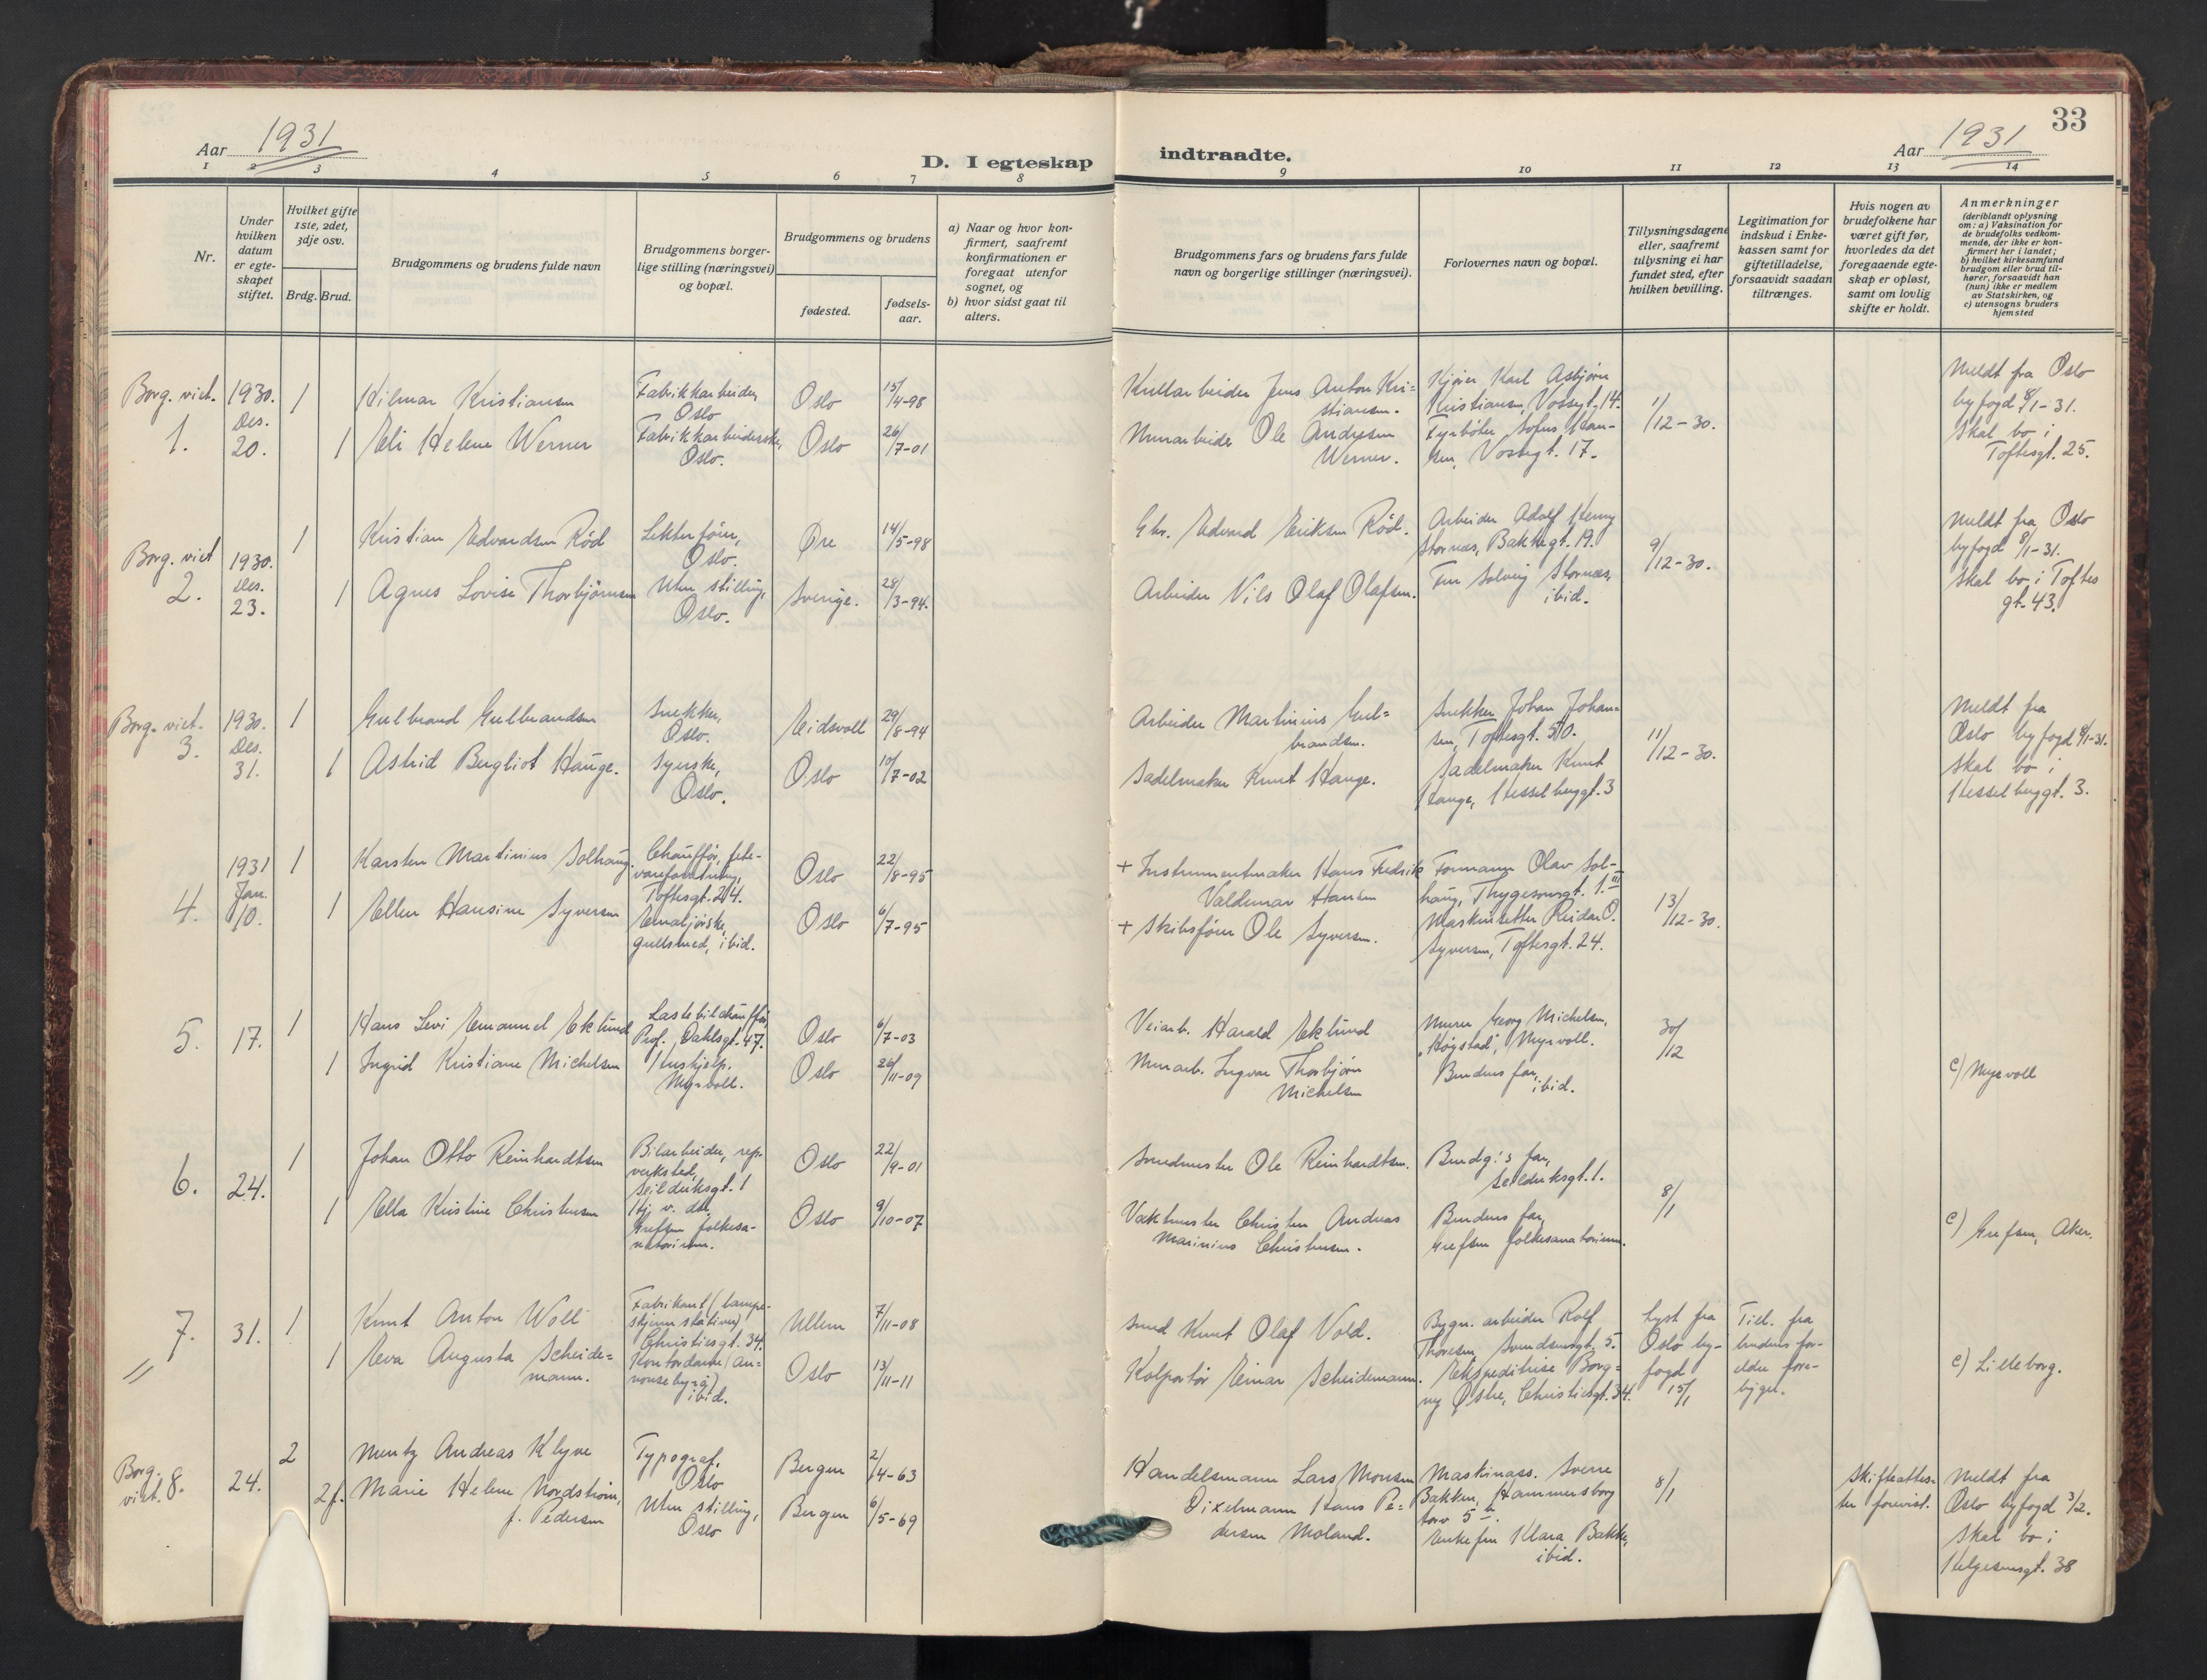 33
Aar 1931
D. I egteskap
indtraadte.
Aar 1931
1 2 3 4 5 6 7 8 9 10 11 12 13 14
Nr.
Under
hvilken
datum
er egte-
skapet
stiftet.
Hvilket gifte
1ste, 2det,
3dje osv.
Brdg. Brud.
Brudgommens og brudens fulde navn
Brudgommens borger-
lige stilling (næringsvei)
og bopæl.
Brudgommens og brudens
fødested.
fødsels-
aar.
a) Naar og hvor kon-
firmert, saafremt
konfirmationen er
foregaat utenfor
sognet, og
b) hvor sidst gaat til
alters.
Brudgommens fars og brudens fars fulde
navn og borgerlige stillinger (næringsvei).
Forlovernes navn og bopæl.
Tillysningsdagene
eller, saafremt
tillysning ei har
fundet sted, efter
hvilken bevilling.
Legitimation for
indskud i Enke-
kassen samt for
giftetilladelse,
forsaavidt saadan
tiltrænges.
Hvis nogen av
brudefolkene har
været gift før,
hvorledes da det
foregaaende egte-
skap er opløst,
samt om lovlig
skifte er holdt.
Anmerkninger
(deriblandt oplysning
om: a) Vaksination for
de brudefolks vedkom-
mende, der ikke er kon-
firmert her i landet;
b) hvilket kirkesamfund
brudgom eller brud til-
hører, forsaavidt han
(hun) ikke er medlem
av Statskirken, og
c) utensogns bruders
hjemsted
Borg. viet.
1.
1930.
Des.
20.
1
Hilmar Kristiansen
Fabrikkarbeider,
Oslo
Oslo
15/4-98
1
Eli Helene Werner
Fabrikkarbeiderske,
Oslo.
Oslo
26/7-01
Kullarbeider Jens Anton Kri=
stiansen.
Murarbeider Ole Andresen
Werner.
Kjører Karl Asbjørn
Kristiansen, Vossegt. 14.
Fyrbøter Sofus Han-
sen, Vossegt. 17.
1/12-30.
Meldt fra Oslo
byfogd 8/1-31.
Skal bo i
Toftesgt. 25.
Borg. viet
2.
1930.
Des.
23.
1
Kristian Edvardsen Rød
Lekterfører,
Oslo.
Øre
14/5-98
1
Agnes Lovise Thorbjørnsen
Uten stilling,
Oslo.
Sverige.
28/3-94.
Gbr. Edvard Eriksen Rød.
Arbeider Nils Olaf Olafsen.
Arbeider Adolf Henry
Stornæs, Bakkegt. 19.
Fru Solveig Stornæs,
ibid.
9/12-30.
Meldt fra Oslo
byfogd 8/1-31.
Skal bo i Toftes
gt. 43.
Borg. viet.
3.
1930.
Des.
31.
1
Gulbrand Gulbrandsen
Snekker,
Oslo.
Eidsvoll
29/8-94
1
Astrid Bergliot Hauge.
Syerske,
Oslo.
Oslo
10/7-02
Arbeider Martinius Gul=
brandsen.
Sadelmaker Knut Hauge.
Snekker Johan Johan=
sen, Toftesgt. 50.
Sadelmaker Knut
Hauge, Hesselberggt. 3
11/12-30.
Meldt fra
Oslo byfogd 8/1-31.
Skal bo i
Hesselberggt. 3.
4.
1931
Jan.
10.
1
Karsten Martinius Solhaug.
Chauffør, fete-
vareforretning,
Toftesgt. 24.
Oslo
22/8-95
1
Ellen Hansine Syversen
Emaljørske,
gullsmed, ibid.
Oslo
6/7-95
+ Instrumentmaker Hans Fredrik
Valdemar Hansen
+ Skibsfører Ole Syversen.
Formann Olav Sol-
haug, Thygesonsgt. 1. III
Maskinsetter Reidar O.
Syversen, Toftesgt. 24.
13/12-30.
5.
17.
1
Hans Levi Emanuel Eklund
Lastebilchauffør,
Prof. Dahlsgt. 47.
Oslo
6/7-03
1
Ingrid Kristiane Michelsen
Hushjelp.
Myrvoll.
Oslo
26/11-09
Veiarb. Harald Eklund
Murarb. Ingvar Thorbjørn
Michelsen
Murer Georg Michelsen,
„Høystad“, Myrvoll.
Brudens far,
ibid.
30/12
c) Myrvoll
6.
24.
1
Johan Otto Reinhardtsen
Bilarbeider, rep.
verksted,
Seilduksgt. 1
Oslo
22/9-01
1
Ella Kristine Christensen
Hj. v. do,
Grefsen folkesa-
natorium.
Oslo
9/10-07
Smedmester Ole Reinhardtsen.
Vaktmester Christen Andreas
Marinius Christensen.
Brudg.'s far,
Seilduksgt. 1.
Brudens far,
Grefsen folkesanatorium.
8/1
c) Grefsen, Aker.
7.
31.
1
Knut Anton Woll
Fabrikant (lampe-
skjerm stativer)
Christiesgt. 34.
Ullern
7/11-08
1
Eva Augusta Scheide=
mann.
Kontordame (an-
nonsebyrå)
ibid.
Oslo
13/11-11
Smed Knut Olaf Vold.
Kolportør Einar Scheidemann.
Bygn. arbeider Rolf
Thoresen, Sverdrupsgt. 5.
Ekspeditrise Borg-
ny Østre, Christiesgt. 34.
Lyst fra
Oslo by-
fogd
15/1
Till. fra
brudens for-
eldre fore-
ligger.
c) Lilleborg.
Borg.
viet. 8.
24.
2
Mentz Andreas Klyve
Typograf,
Oslo
Bergen
2/4-63
2 f.
Marie Helene Nordstrøm,
f. Pedersen
Uten stilling,
Oslo
Bergen
6/5-69
Handelsmann Lars Monsen
Dixelmann Hans Pe=
dersen Moland.
Maskinass. Sverre
Bakken, Hammersborg
torv 5 b.
Enkefru Klara Bakke,
ibid.
8/1
Skifteattes-
ter forevist.
Meldt fra
Oslo byfogd 3/2.
Skal bo i
Helgesensgt. 38